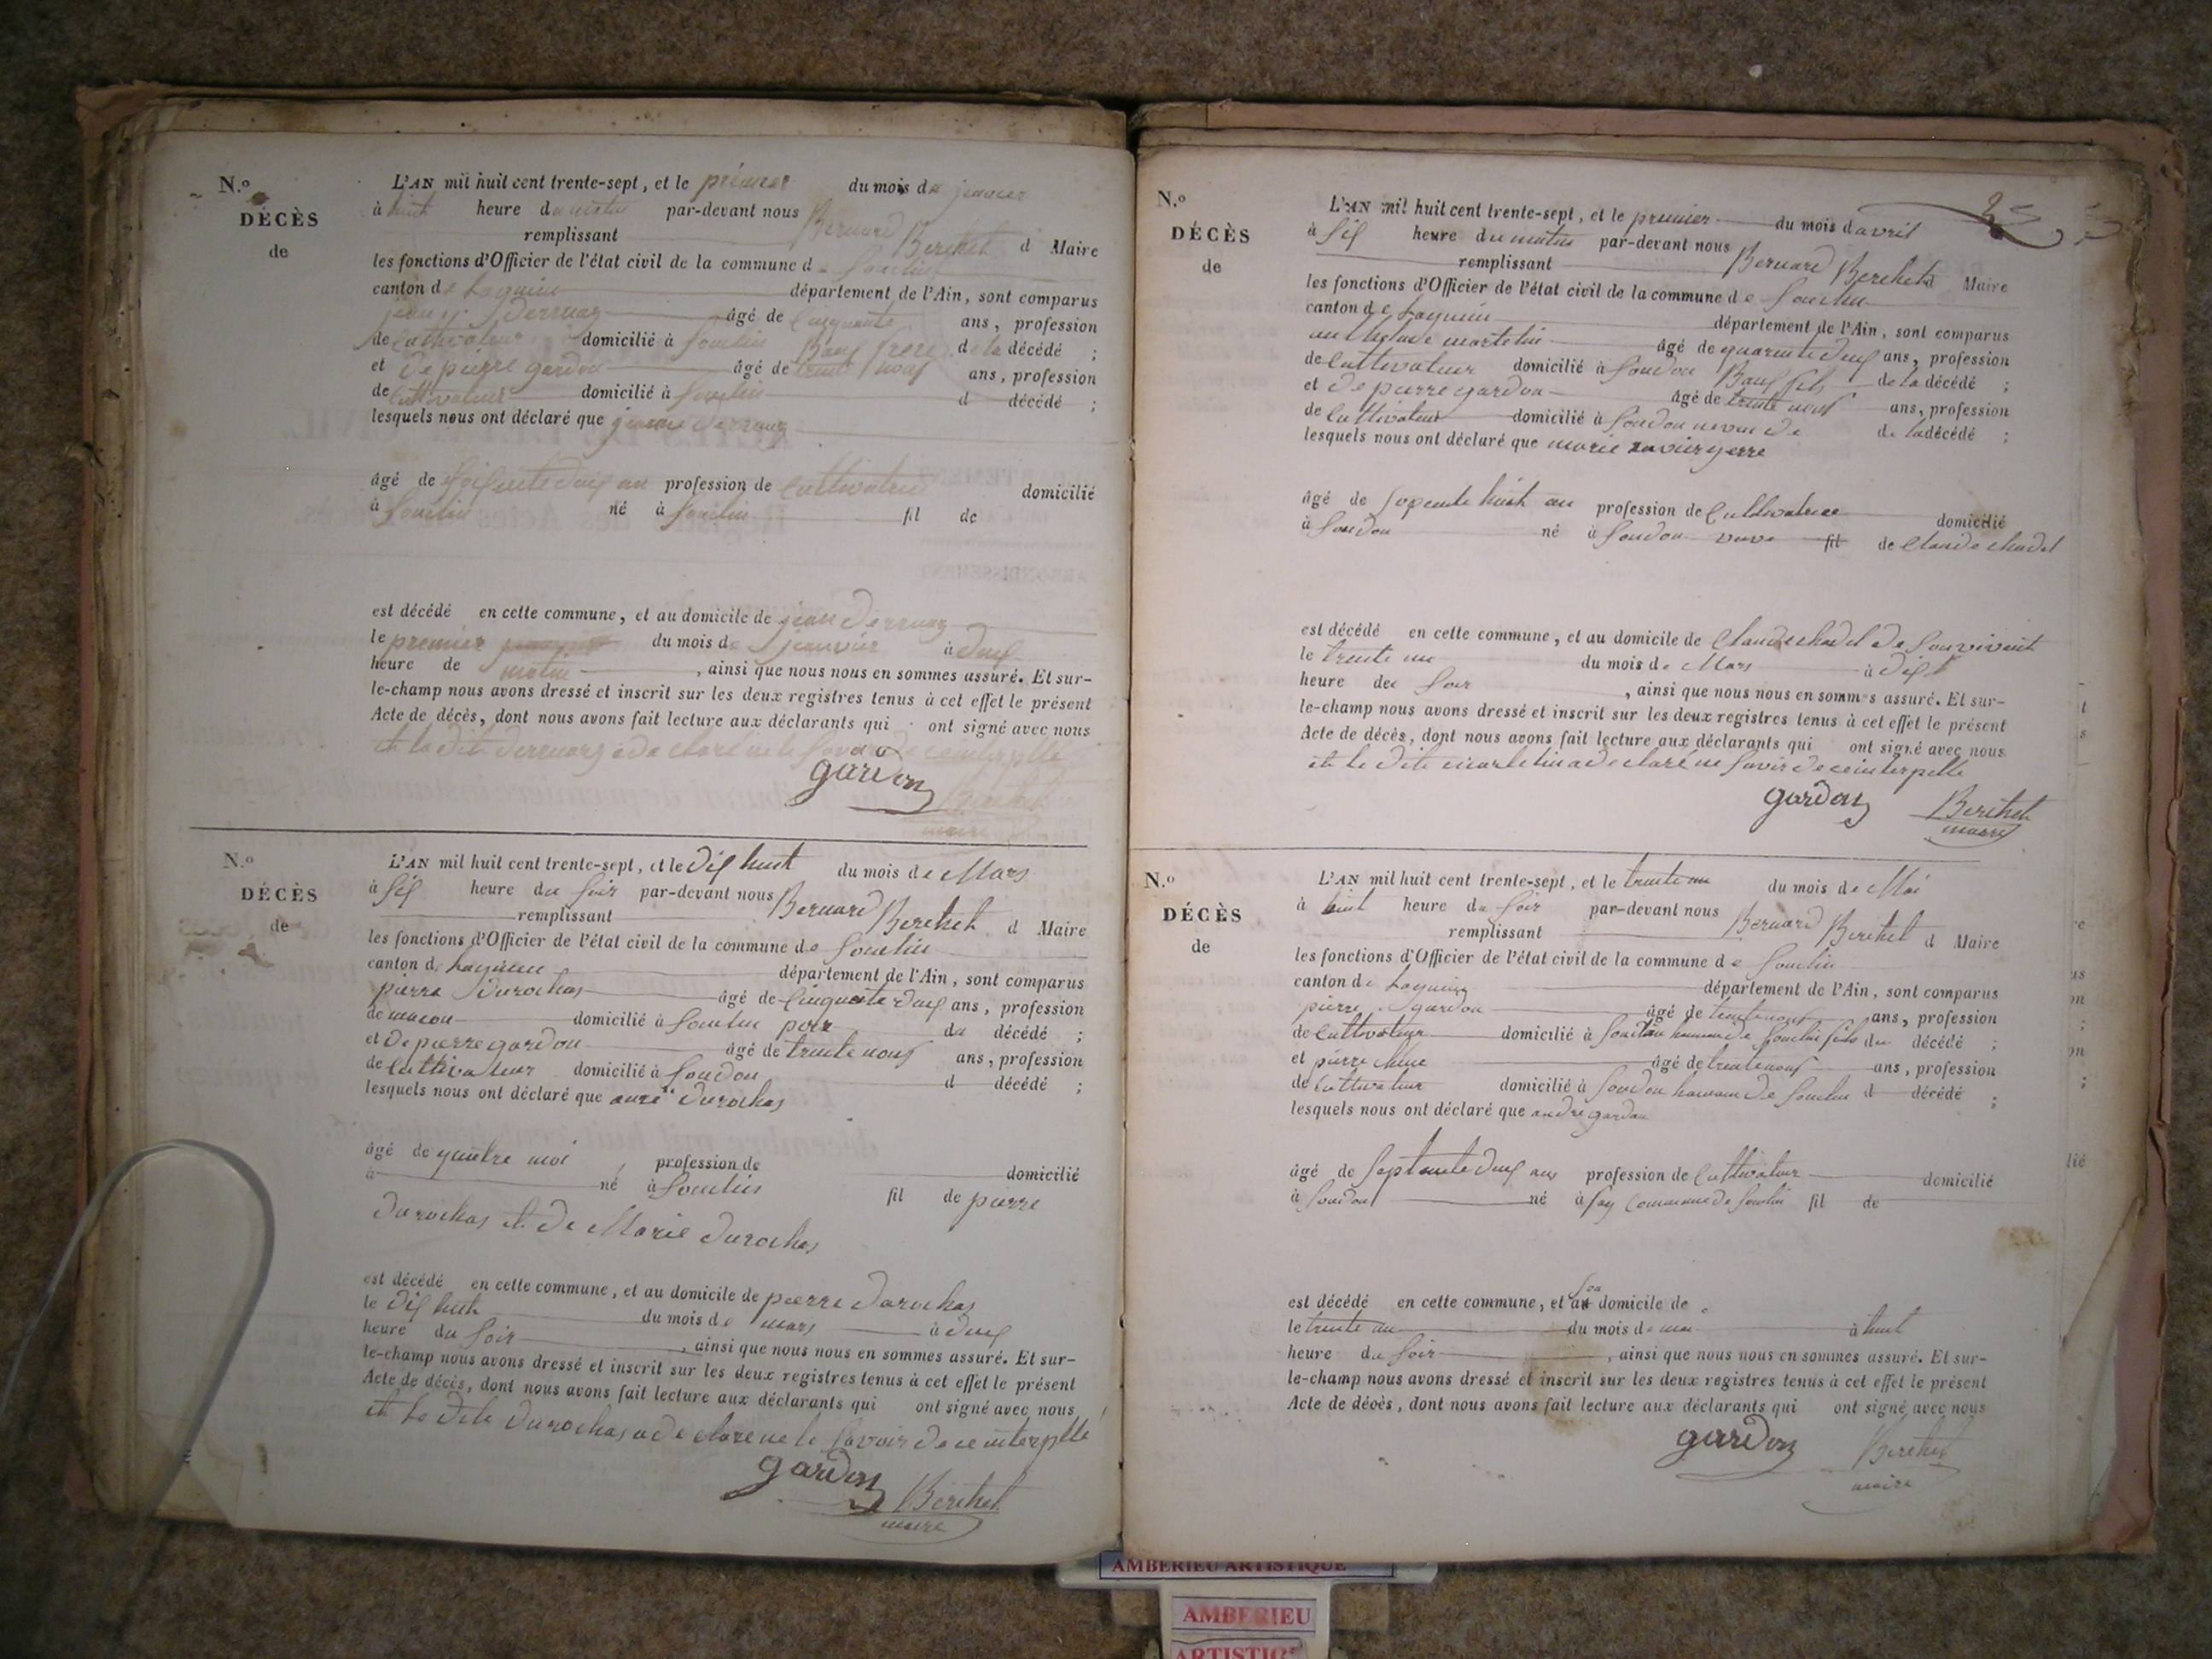 N.º
DÉCÈS
de
L'AN mil huit cent trente-sept, et le premier du mois de janvier
à huit heure du matin par-devant nous Bernard
remplissant Berthet d Maire
les fonctions d'Officier de l'état civil de la commune de Souclin
canton de Lagnieu département de l'Ain, sont comparus
âgé de cinquante ans, profession
de cultivateur domicilié à Souclin Bauf frere de la décédé ;
et de pierre gardon âgé de trente nouf ans, profession
de cultivateur domicilié à Souclin d décédé ;
lesquels nous ont déclaré que
âgé de soisente deuy an profession de cultivatrice domicilié
à Souclin né à Souclin fil de
est décédé en cette commune, et au domicile de jean
le premier du mois de janvier à deuy
heure de matin , ainsi que nous nous en sommes assuré. Et sur-
le-champ nous avons dressé et inscrit sur les deux registres tenus à cet effet le présent
Acte de décès, dont nous avons fait lecture aux déclarants qui ont signé avec nous
et la dite a declare ne le Savoir de ce interpelle
gardon
Berthet
maire
N.º
DÉCÈS
de
L'AN mil huit cent trente-sept, et le diy huit du mois de Mars
à siy heure du soir par-devant nous Bernard
remplissant Berthet d Maire
les fonctions d'Officier de l'état civil de la commune de Souclin
canton de Lagnieu département de l'Ain, sont comparus
pierre durochas âgé de Cinquante deuy ans, profession
de macon domicilié à Souclin pere du décédé ;
et de pierre gardon âgé de trente nouf ans, profession
de cultivateur domicilié à Soudon d décédé ;
lesquels nous ont déclaré que durochas
âgé de quatre moi profession de domicilié
à né à Souclin fil de pierre
durochas et de Marie durochas
est décédé en cette commune, et au domicile de pierre durochas
le diy huit du mois de mars à deuy
heure du soir , ainsi que nous nous en sommes assuré. Et sur-
le-champ nous avons dressé et inscrit sur les deux registres tenus à cet effet le présent
Acte de décès, dont nous avons fait lecture aux déclarants qui ont signé avec nous
et le dite durochas a declare ne le Savoir de ce interpelle
gardon
Berthet
maire
N.º
DÉCÈS
de
L'AN mil huit cent trente-sept, et le premier du mois d avril
à siy heure du matin par-devant nous Bernard Berthet d Maire
remplissant
les fonctions d'Officier de l'état civil de la commune de Souclin
canton de Lagnieu département de l'Ain, sont comparus
martelin âgé de quarante deuy ans, profession
de cultivateur domicilié à Soudon Bauf fils de la décédé ;
et de pierre gardon âgé de trente nouf ans, profession
de cultivateur domicilié à Soudon neveu de de la décédé ;
lesquels nous ont déclaré que marie
âgé de huit an profession de cultivatrice domicilié
à Soudon né à Soudon veuve fil de Claude chadel
est décédé en cette commune, et au domicile de Claude chadel de Son vivent
le trente un du mois de Mars à
heure deu soir , ainsi que nous nous en sommes assuré. Et sur-
le-champ nous avons dressé et inscrit sur les deux registres tenus à cet effet le présent
Acte de décès, dont nous avons fait lecture aux déclarants qui ont signé avec nous
et le dite martelin a declaré ne Savoir de ce interpelle
gardon
Berthet
maire
N.º
DÉCÈS
de
L'AN mil huit cent trente-sept, et le trente un du mois de Mai
à huit heure du soir par-devant nous Bernard
remplissant Berthet d Maire
les fonctions d'Officier de l'état civil de la commune de Souclin
canton de Lagnieu département de l'Ain, sont comparus
pierre gardon âgé de trente nouf ans, profession
de cultivateur domicilié à Soudon hamau de Souclin fils du décédé ;
et pierre âgé de trente nouf ans, profession
de cultivateur domicilié à Soudon hamau de Souclin d décédé ;
lesquels nous ont déclaré que andre gardon
âgé de Septente deuy ans profession de cultivateur domicilié
à Soudon né à fay Commune de Souclin fil de
son
est décédé en cette commune, et au domicile de
le trente un du mois de mai à huit
heure du soir , ainsi que nous nous en sommes assuré. Et sur-
le-champ nous avons dressé et inscrit sur les deux registres tenus à cet effet le présent
Acte de décès, dont nous avons fait lecture aux déclarants qui ont signé avec nous
gardon
Berthet
maire
AMBERIEU ARTISTIQUE
AMBERIEU
ARTISTIQ